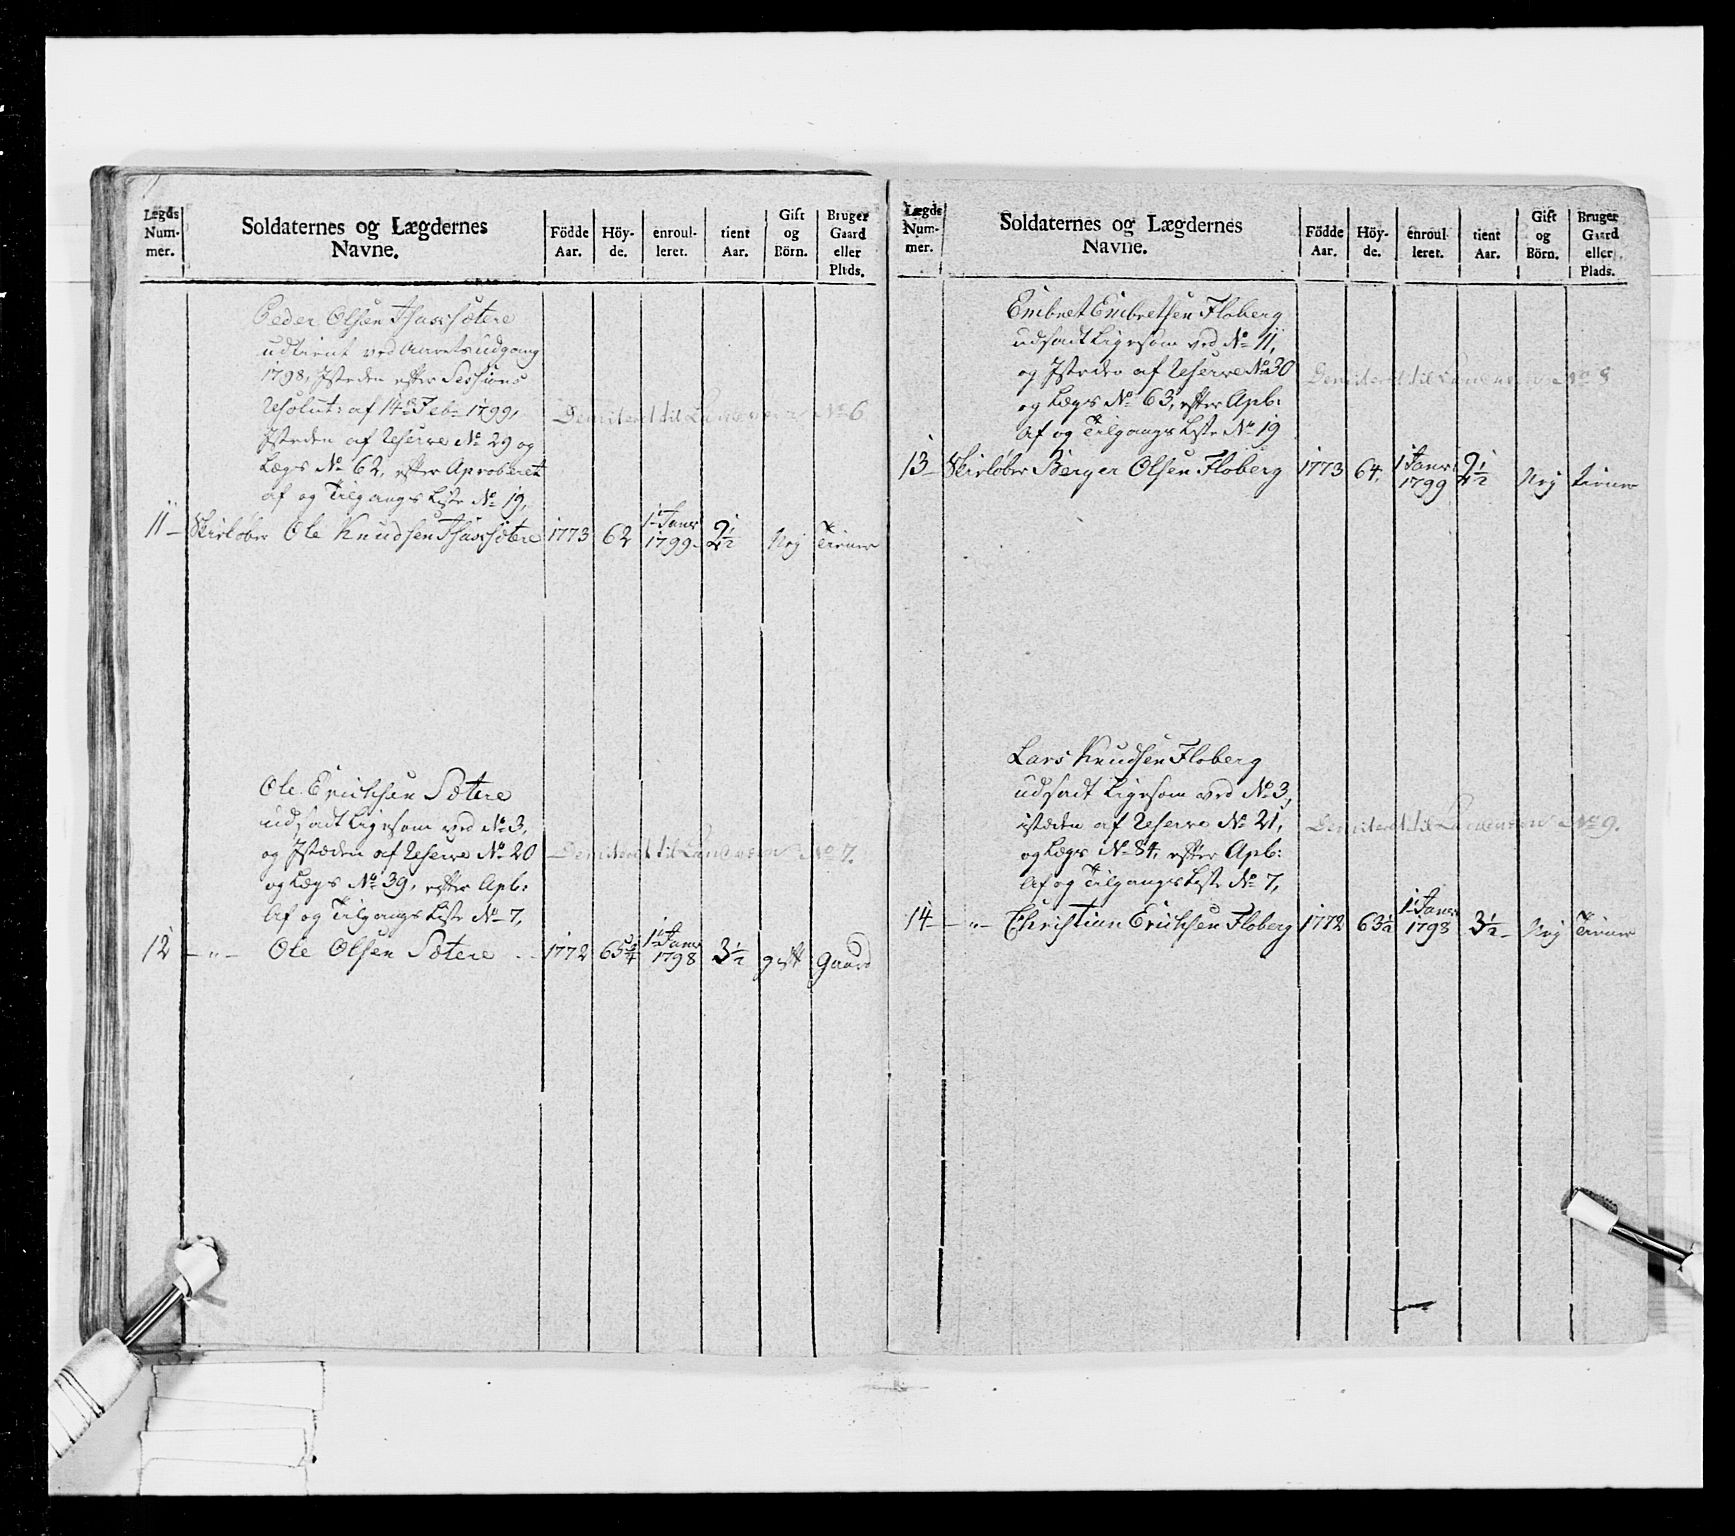 Lægds Num- mer.
Soldaternes og Lægdernes Navne.
Födde Aar.
Höy- de.
enroul- leret.
tient Aar.
Gift og Börn.
Bruger Gaard eller Plads.
Peder Olsen
udtient ved Aarets udgang
1798, Isteden efter Sessions
Resolut: af 14de Feb: 1799,
Isteden af Reserve No 29 og
Lægs No 62, efter Aproberet
af og Tilgangs Liste No 19,
Demiteret til Landværn No 6
11 — Skieløber Ole Knudsen 1773 62 1 Janr 1799 2 1/2 Nej Tiener
Ole Erichsen Sætere
udsadt Ligesom ved No 3,
og Isteden af Reserve No 20
og Lægs No 39, efter Apb:
Af og Tilgangs Liste No 7,
Demiteret til Landværn No 7.
12 — " — Ole Olsen Sætere 1772 65 3/4 1 Janr 1798 3 1/2 gift Gaard
Lægds Num- mer.
Soldaternes og Lægdernes Navne.
Födde Aar.
Höy- de.
enroul- leret.
tient Aar.
Gift og Börn.
Bruger Gaard eller Plads.
Embret Embretsen Floberg
udsadt Ligesom ved No 11,
og Isteden af Reserve No 30
og Lægs No 63, efter Apb:
Af og Tilgangs Liste No 19
Demiteret til Landværn No 8
13 — Skieløber Berger Olsen Floberg 1773 64, 1 Janr 1799 2 1/2 Nej tiener
Lars Knudsen Floberg
udsadt Ligesom ved No 3,
isteden af Reserve No 21,
og Lægs No 84, efter Apb:
Af og Tilgangs Liste No 7,
Demiteret til Landværn No 9.
14 — " — Christian Erichsen Floberg 1772 63 1/2 1 Janr 1798 3 1/2 Nej Tiener